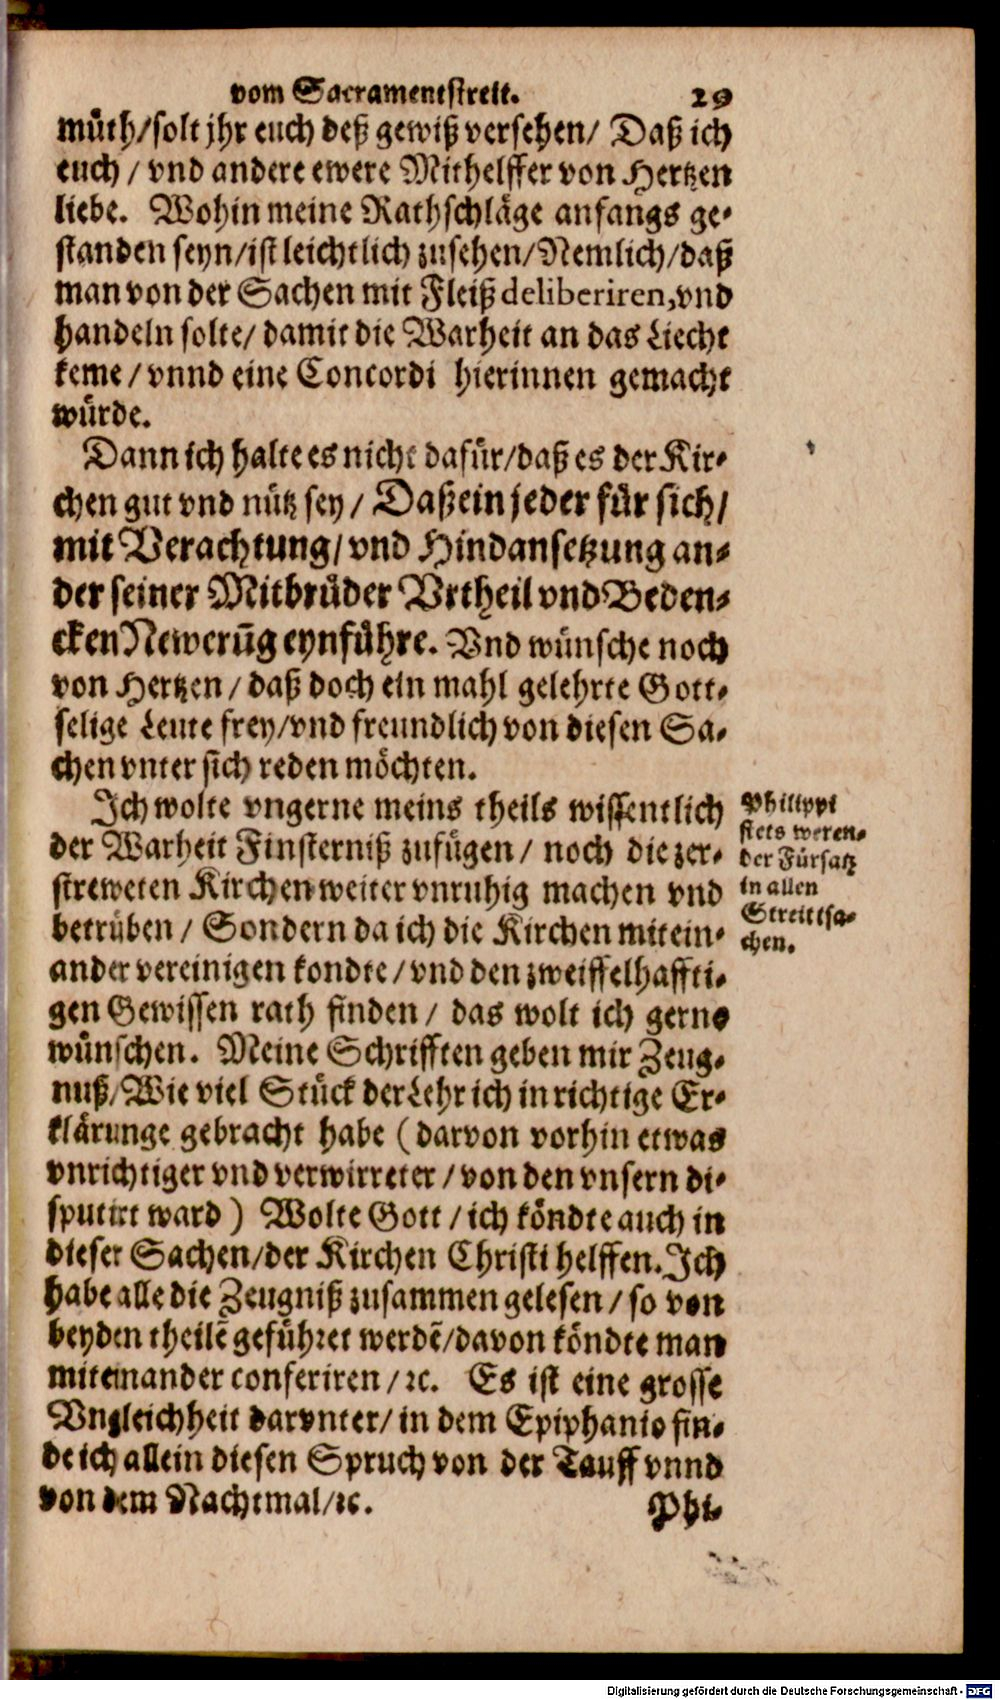 vom Sacramentstreit. 29
müth/solt jhr euch deß gewiß versehen/ Daß ich
euch / vnd andere ewere Mithelffer von Hertzen
liebe. Wohin meine Rathschläge anfangs ge-
standen seyn/ist leichtlich zusehen/Nemlich/daß
man von der Sachen mit Fleiß deliberiren, vnd
handeln solte/ damit die Warheit an das Liecht
keme / vnnd eine Concordi hierinnen gemacht
würde.
Dann ich halte es nicht dafür/daß es der Kir-
chen gut vnd nütz sey / Daß ein jeder für sich/
mit Verachtung/ vnd Hindansetzung an-
der seiner Mitbrüder Vrtheil vnd Beden-
cken Newerūg eynführe. Vnd wünsche noch
von Hertzen / daß doch ein mahl gelehrte Gott-
selige Leute frey/vnd freundlich von diesen Sa-
chen vnter sich reden möchten.
Ich wolte vngerne meins theils wissentlich
der Warheit Finsterniß zufügen / noch die zer-
streweten Kirchen weiter vnruhig machen vnd
betrüben / Sondern da ich die Kirchen mit ein-
ander vereinigen kondte / vnd den zweiffelhaffti-
gen Gewissen rath finden / das wolt ich gerne
wünschen. Meine Schrifften geben mir Zeug-
nuß/Wie viel Stück der Lehr ich in richtige Er-
klärunge gebracht habe (darvon vorhin etwas
vnrichtiger vnd verwirreter / von den vnsern di-
sputirt ward) Wolte Gott / ich köndte auch in
dieser Sachen/der Kirchen Christi helffen. Ich
habe alle die Zeugniß zusammen gelesen / so von
beyden theilē geführet werdē/davon köndte man
miteinander conferiren / ꝛc. Es ist eine grosse
Vngleichheit darvnter/ in dem Epiphanio fin-
de ich allein diesen Spruch von der Tauff vnnd
von dem Nachtmal/ꝛc.
Phi-
Philippi
stets weren-
der Fürsatz
in allen
Streittsa-
chen.
Digitalisierung gefördert durch die Deutsche Forschungsgemeinschaft - DFG